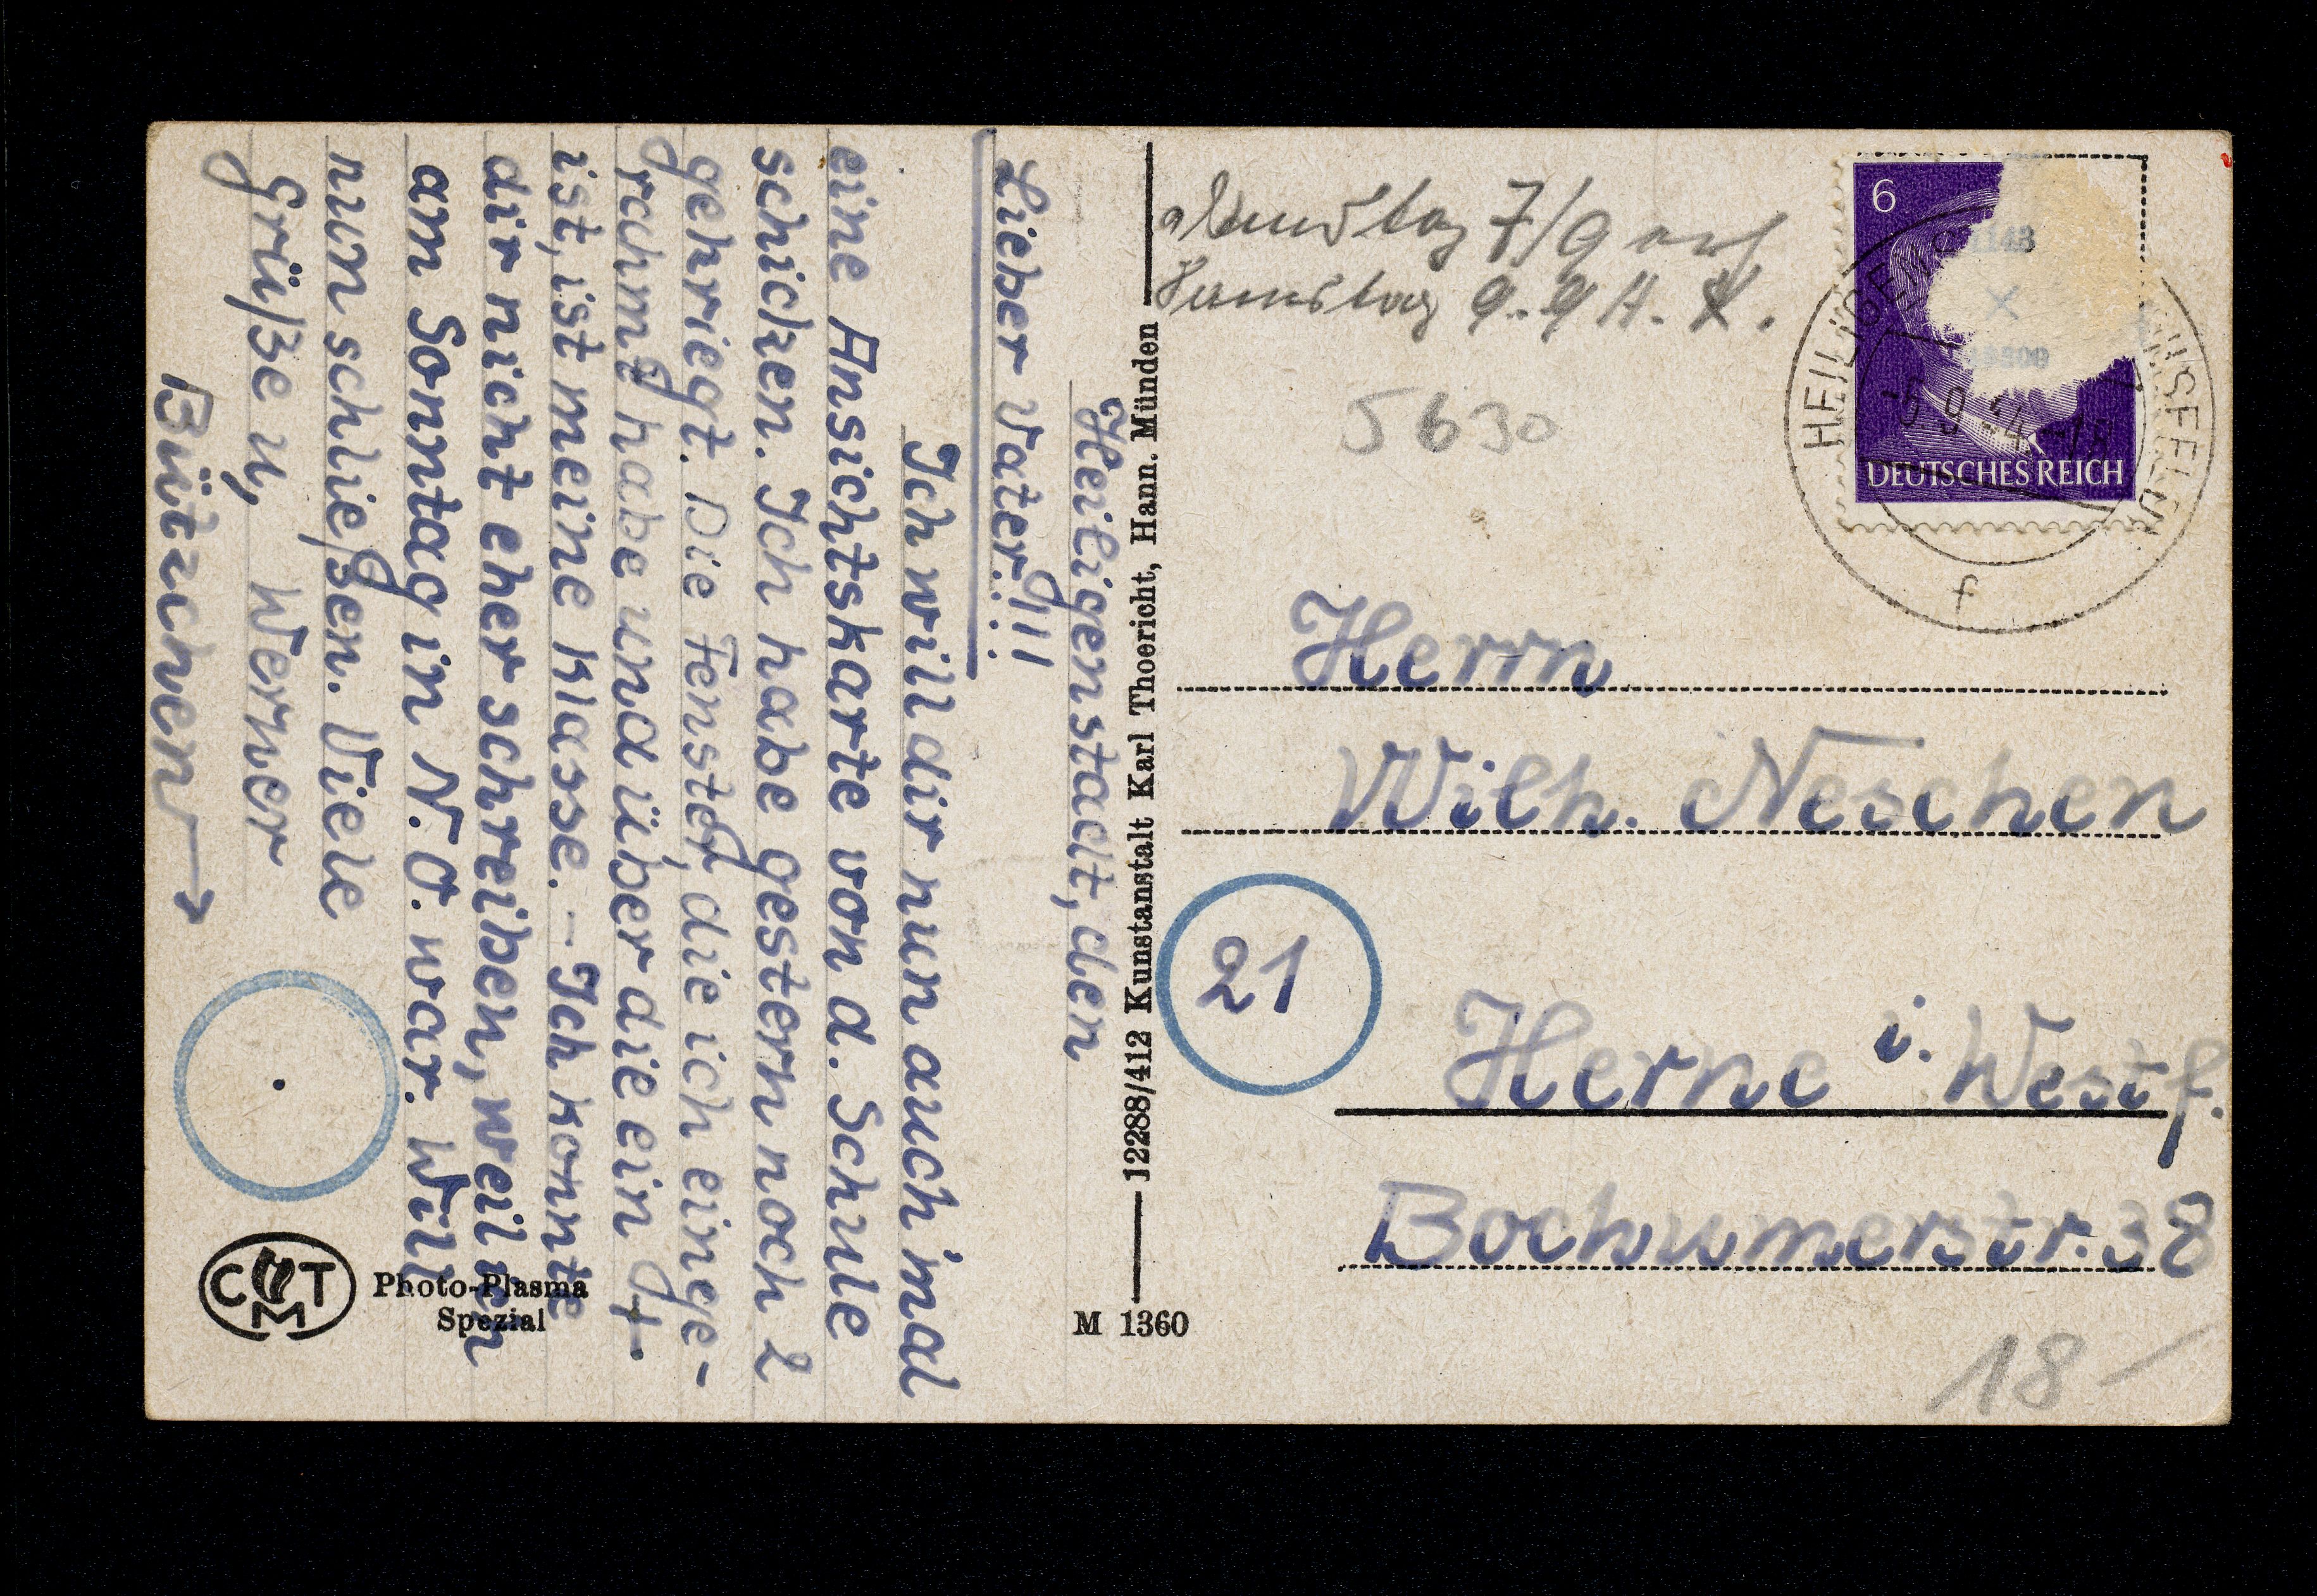 Heiligenstadt, den
Lieber Vater!!!
Ich will dir nun auch mal
eine Ansichtskarte von d. Schule
schicken. Ich habe gestern noch 2
gekriegt. Die Fenster, die ich einge-
rahmt habe und über die ein +
ist, ist meine Klasse. – Ich konnte
dir nicht eher schreiben, weil ich
am Sonntag in N.O. war. Will
nun schließen. Viele
Grüße u. Werner
Bützchen →
C M T
Photo-Plasma
Spezial
12288/412 Kunstanstalt Karl Thoericht, Hann. Münden
M 1360
7/9
Samstag 9.9
5630
6
DEUTSCHES REICH
HEILIGEN
EICHSFELD
-5.9.4
f
Herrn
Wilh. Neschen
21
Herne i. Westf.
Bochumerstr. 38
18 –